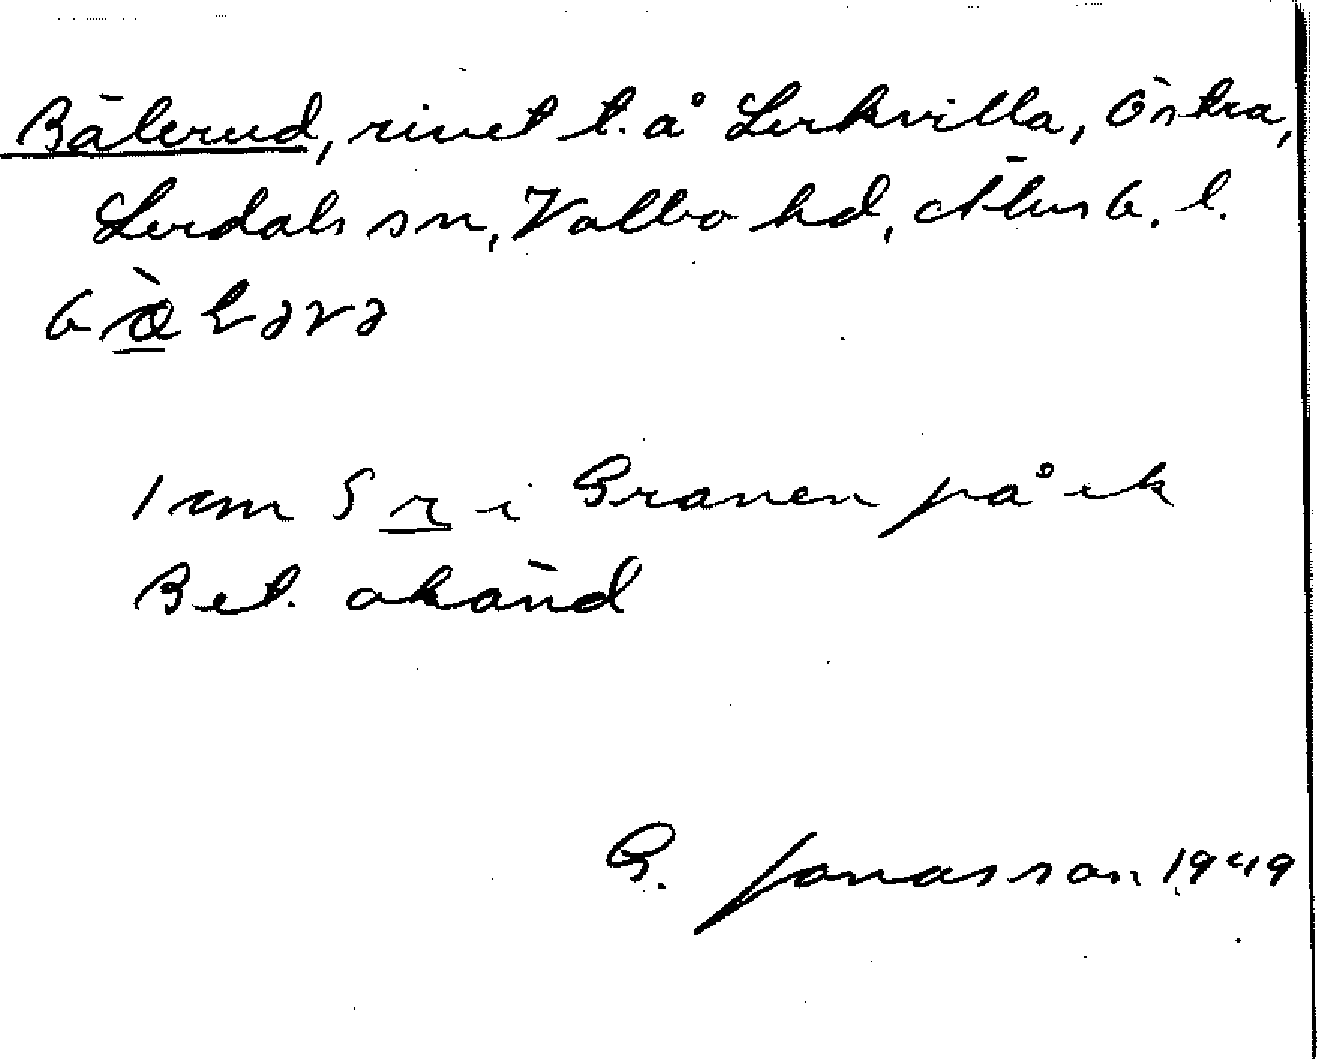 Bälerud, rivet t. å Lerkvilla, Östra,
Lerdals sn, Valbo hd, Älvsb. l.
1 cm S r i Granen på ek
Bet. okänd
G. Jonasson 1949